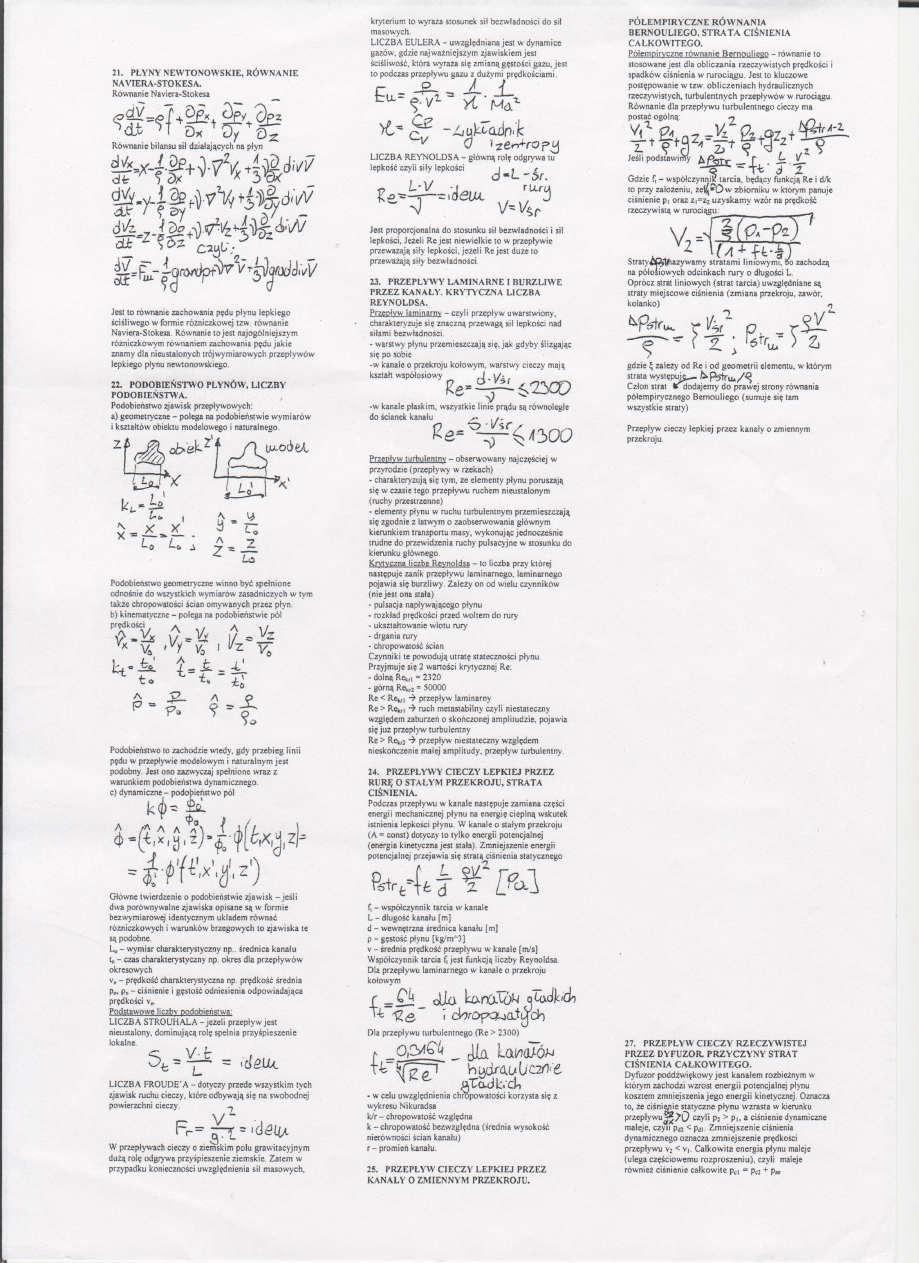 21. PŁYNY NEWTONOWSKIE, RÓWNANIE
NAVIERA-STOKESA.
Równanie Naviera-Stokesa
ρ dV̄/dt = ρf̄ + ∂px/∂x + ∂py/∂y + ∂pz/∂z
Równanie bilansu sił działających na płyn
dVx/dt = X - 1/ρ ∂p/∂x + ν·∇²Vx + 1/3 ν ∂/∂x div V̄
dVy/dt = Y - 1/ρ ∂p/∂y + ν·∇²Vy + 1/3 ν ∂/∂y div V̄
dVz/dt = Z - 1/ρ ∂p/∂z + ν·∇²Vz + 1/3 ν ∂/∂z div V̄
czyli:
dV̄/dt = F̄m - 1/ρ grand p + ν∇²V̄ + 1/3 ν grad div V̄
Jest to równanie zachowania pędu płynu lepkiego
ściśliwego w formie różniczkowej tzw. równanie
Naviera-Stokesa. Równanie to jest najogólniejszym
różniczkowym równaniem zachowania pędu jakie
znamy dla nieustalonych trójwymiarowych przepływów
lepkiego płynu newtonowskiego.
22. PODOBIEŃSTWO PŁYNÓW, LICZBY
PODOBIEŃSTWA.
Podobieństwo zjawisk przepływowych:
a) geometryczne – polega na podobieństwie wymiarów
i kształtów obiektu modelowego i naturalnego.
Z obiekt Z' model
L₀ X L₀' X'
kL = L₀'/L₀
x̂ = X/L₀ = X'/L₀' ; ŷ = y/L₀
ẑ = Z/L₀
Podobieństwo geometryczne winno być spełnione
odnośnie do wszystkich wymiarów zasadniczych w tym
także chropowatości ścian omywanych przez płyn.
b) kinematyczne – polega na podobieństwie pól
prędkości
V̂x = Vx/V₀ , V̂y = Vy/V₀ , V̂z = Vz/V₀
kt = t₀'/t₀ t̂ = t/t₀ = t'/t₀'
p̂ = P/P₀ ρ̂ = ρ/ρ₀
Podobieństwo to zachodzie wtedy, gdy przebieg linii
pędu w przepływie modelowym i naturalnym jest
podobny. Jest ono zazwyczaj spełnione wraz z
warunkiem podobieństwa dynamicznego.
c) dynamiczne – podobieństwo pól
kϕ = ϕ₀'/ϕ₀
ϕ̂ = (t̂, x̂, ŷ, ẑ) = 1/ϕ₀ · ϕ(t,x,y,z) =
= 1/ϕ₀' · ϕ'(t',x',y',z')
Główne twierdzenie o podobieństwie zjawisk – jeśli
dwa porównywalne zjawiska opisane są w formie
bezwymiarowej identycznym układem równać
różniczkowych i warunków brzegowych to zjawiska te
są podobne.
L₀ – wymiar charakterystyczny np.. średnica kanału
t₀ – czas charakterystyczny np. okres dla przepływów
okresowych
v₀ – prędkość charakterystyczna np. prędkość średnia
p₀, ρ₀ – ciśnienie i gęstość odniesienia odpowiadająca
prędkości v₀.
Podstawowe liczby podobieństwa:
LICZBA STROUHALA – jeżeli przepływ jest
nieustalony, dominującą rolę spełnia przyśpieszenie
lokalne.
St = V·t/L = idem
LICZBA FROUDE'A – dotyczy przede wszystkim tych
zjawisk ruchu cieczy, które odbywają się na swobodnej
powierzchni cieczy.
Fr = V²/g·L = idem
W przepływach cieczy o ziemskim polu grawitacyjnym
dużą rolę odgrywa przyśpieszenie ziemskie. Zatem w
przypadku konieczności uwzględnienia sił masowych,
kryterium to wyraża stosunek sił bezwładności do sił
masowych.
LICZBA EULERA – uwzględniana jest w dynamice
gazów, gdzie najważniejszym zjawiskiem jest
ściśliwość, która wyraża się zmianą gęstości gazu, jest
to podczas przepływu gazu z dużymi prędkościami.
Eu = P/ρ·V² = 1/ϰ · 1/Ma²
ϰ = Cp/Cv - wykładnik
izentropy
LICZBA REYNOLDSA – główną rolę odgrywa tu
lepkość czyli siły lepkości
Re = L·V/ν = idem d=L-śr.
rury
V=Vśr
Jest proporcjonalna do stosunku sił bezwładności i sił
lepkości, Jeżeli Re jest niewielkie to w przepływie
przeważają siły lepkości, jeżeli Re jest duże to
przeważają siły bezwładności.
23. PRZEPŁYWY LAMINARNE I BURZLIWE
PRZEZ KANAŁY. KRYTYCZNA LICZBA
REYNOLDSA.
Przepływ laminarny – czyli przepływ uwarstwiony,
charakteryzuje się znaczną przewagą sił lepkości nad
siłami bezwładności.
- warstwy płynu przemieszczają się, jak gdyby ślizgając
się po sobie
-w kanale o przekroju kołowym, warstwy cieczy mają
kształt współosiowy
Re = d·Vśr/ν ≤ 2300
-w kanale płaskim, wszystkie linie prądu są równoległe
do ścianek kanału
Re = S·Vśr/ν ≤ 1300
Przepływ turbulentny – obserwowany najczęściej w
przyrodzie (przepływy w rzekach)
- charakteryzują się tym, że elementy płynu poruszają
się w czasie tego przepływu ruchem nieustalonym
(ruchy przestrzenne)
- elementy płynu w ruchu turbulentnym przemieszczają
się zgodnie z łatwym o zaobserwowania głównym
kierunkiem transportu masy, wykonując jednocześnie
trudne do przewidzenia ruchy pulsacyjne w stosunku do
kierunku głównego.
Krytyczna liczba Reynoldsa – to liczba przy której
następuje zanik przepływu laminarnego, laminarnego
pojawia się burzliwy. Zależy on od wielu czynników
(nie jest ona stała)
- pulsacja napływającego płynu
- rozkład prędkości przed woltem do rury
- ukształtowanie wlotu rury
- drgania rury
- chropowatość ścian
Czynniki te powodują utratę stateczności płynu.
Przyjmuje się 2 wartości krytycznej Re:
- dolną Rekr1 = 2320
- górną Rekr2 = 50000
Re < Rekr1 → przepływ laminarny
Re > Rekr1 → ruch metastabilny czyli niestateczny
względem zaburzeń o skończonej amplitudzie, pojawia
się już przepływ turbulentny
Re > Rekr2 → przepływ niestateczny względem
nieskończenie małej amplitudy, przepływ turbulentny.
24. PRZEPŁYWY CIECZY LEPKIEJ PRZEZ
RURĘ O STAŁYM PRZEKROJU, STRATA
CIŚNIENIA.
Podczas przepływu w kanale następuje zamiana części
energii mechanicznej płynu na energię cieplną wskutek
istnienia lepkości płynu. W kanale o stałym przekroju
(A = const) dotyczy to tylko energii potencjalnej
(energia kinetyczna jest stała). Zmniejszenie energii
potencjalnej przejawia się stratą ciśnienia statycznego
Pstrt = ft L/d ρV²/2 [Pa]
ft – współczynnik tarcia w kanale
L – długość kanału [m]
d – wewnętrzna średnica kanału [m]
ρ – gęstość płynu [kg/m^3]
v – średnia prędkość przepływu w kanale [m/s]
Współczynnik tarcia ft jest funkcją liczby Reynoldsa.
Dla przepływu laminarnego w kanale o przekroju
kołowym
ft = 64/Re - dla kanałów gładkich
i chropowatych
Dla przepływu turbulentnego (Re > 2300)
ft = 0,3164/⁴√Re - dla kanałów
hydraulicznie
gładkich
- w celu uwzględnienia chropowatości korzysta się z
wykresu Nikuradsa
k/r – chropowatość względna
k – chropowatość bezwzględna (średnia wysokość
nierówności ścian kanału)
r – promień kanału.
25. PRZEPŁYW CIECZY LEPKIEJ PRZEZ
KANAŁY O ZMIENNYM PRZEKROJU.
PÓŁEMPIRYCZNE RÓWNANIA
BERNOULIEGO, STRATA CIŚNIENIA
CAŁKOWITEGO.
Półempiryczne równanie Bernouliego – równanie to
stosowane jest dla obliczania rzeczywistych prędkości i
spadków ciśnienia w rurociągu. Jest to kluczowe
postępowanie w tzw. obliczeniach hydraulicznych
rzeczywistych, turbulentnych przepływów w rurociągu.
Równanie dla przepływu turbulentnego cieczy ma
postać ogólną:
V₁²/2 + P₁/ρ + gz₁ = V₂²/2 + P₂/ρ + gz₂ + ΔPstr1-2/ρ
Jeśli podstawimy ΔPstr/ρ = ft · L/d · V²/2
Gdzie ft – współczynnik tarcia, będący funkcją Re i d/k
to przy założeniu, że V₁≈0 w zbiorniku w którym panuje
ciśnienie p₁ oraz z₁=z₂ uzyskamy wzór na prędkość
rzeczywistą w rurociągu:
V₂ = √(2/ρ (p₁-p₂) / (1 + ft·L/d))
Straty ΔPstr nazywamy stratami liniowymi, bo zachodzą
na półosiowych odcinkach rury o długości L.
Oprócz strat liniowych (strat tarcia) uwzględniane są
straty miejscowe ciśnienia (zmiana przekroju, zawór,
kolanko)
ΔPstrm/ρ = ζ Vśr²/2 ; Pstrm = ζ ρV²/2
gdzie ξ zależy od Re i od geometrii elementu, w którym
strata występuje ΔPstrm/ρ
Człon strat dodajemy do prawej strony równania
półempirycznego Bernouliego (sumuje się tam
wszystkie straty)
Przepływ cieczy lepkiej przez kanały o zmiennym
przekroju.
27. PRZEPŁYW CIECZY RZECZYWISTEJ
PRZEZ DYFUZOR. PRZYCZYNY STRAT
CIŚNIENIA CAŁKOWITEGO.
Dyfuzor poddźwiękowy jest kanałem rozbieżnym w
którym zachodzi wzrost energii potencjalnej płynu
kosztem zmniejszenia jego energii kinetycznej. Oznacza
to, że ciśnienie statyczne płynu wzrasta w kierunku
przepływu dp/dx>0 czyli p₂ > p₁, a ciśnienie dynamiczne
maleje, czyli pd2 < pd1. Zmniejszenie ciśnienia
dynamicznego oznacza zmniejszenie prędkości
przepływu v₂ < v₁. Całkowita energia płynu maleje
(ulega częściowemu rozproszeniu), czyli maleje
również ciśnienie całkowite pc1 = pc2 + pstr